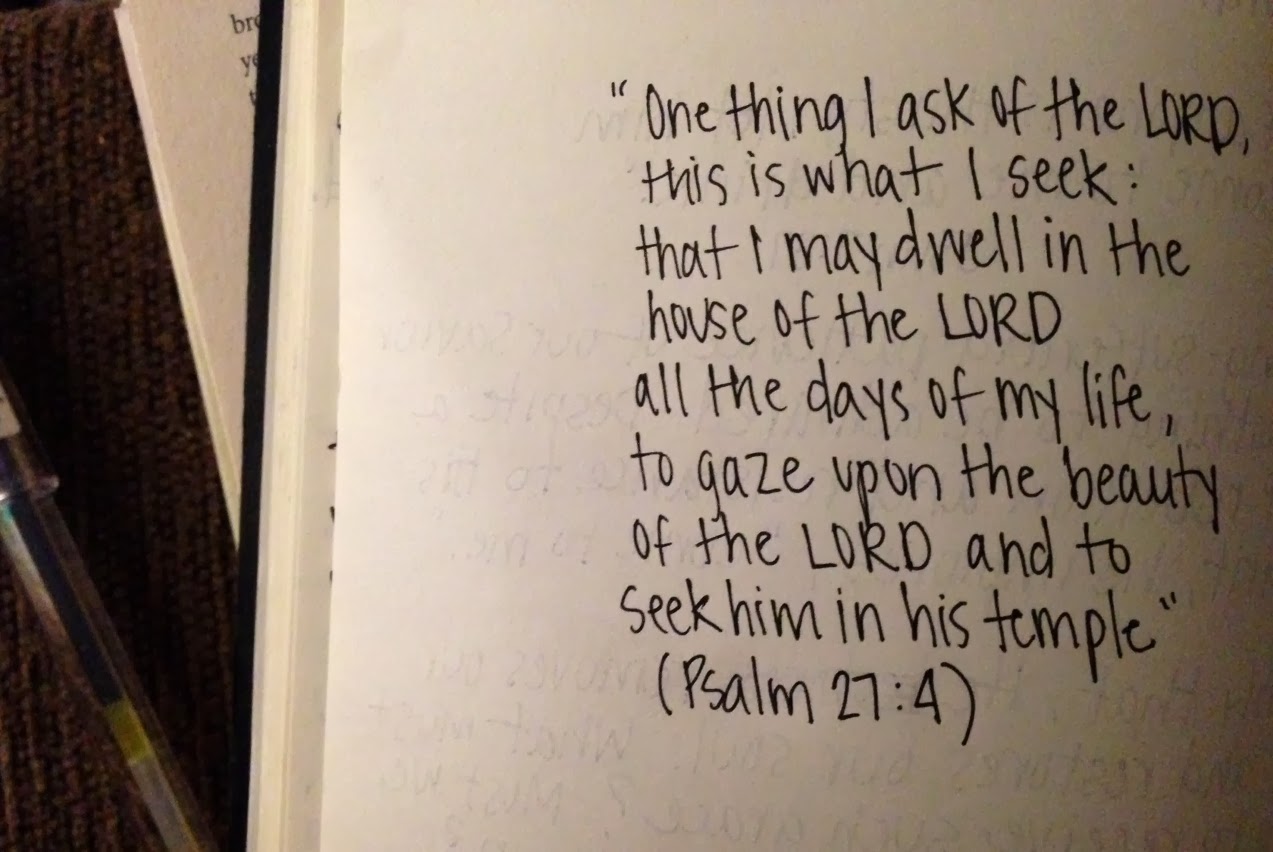 bro
ye
"One thing I ask of the LORD,
this is what I seek:
that I may dwell in the
house of the LORD
all the days of my life,
to gaze upon the beauty
of the LORD and to
seek him in his temple"
(Psalm 27:4)